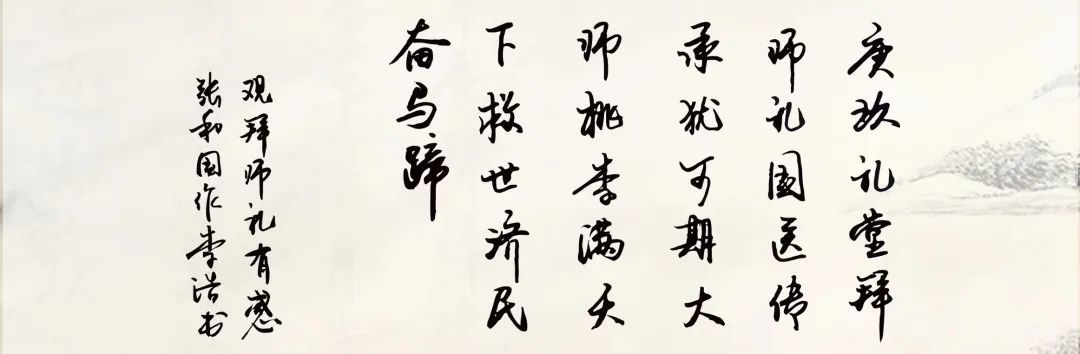 庚玖礼堂拜
师礼国医传
承犹可期大
师桃李满天
下救世济民
奋马蹄
观拜师礼有感
张和国作李浩书